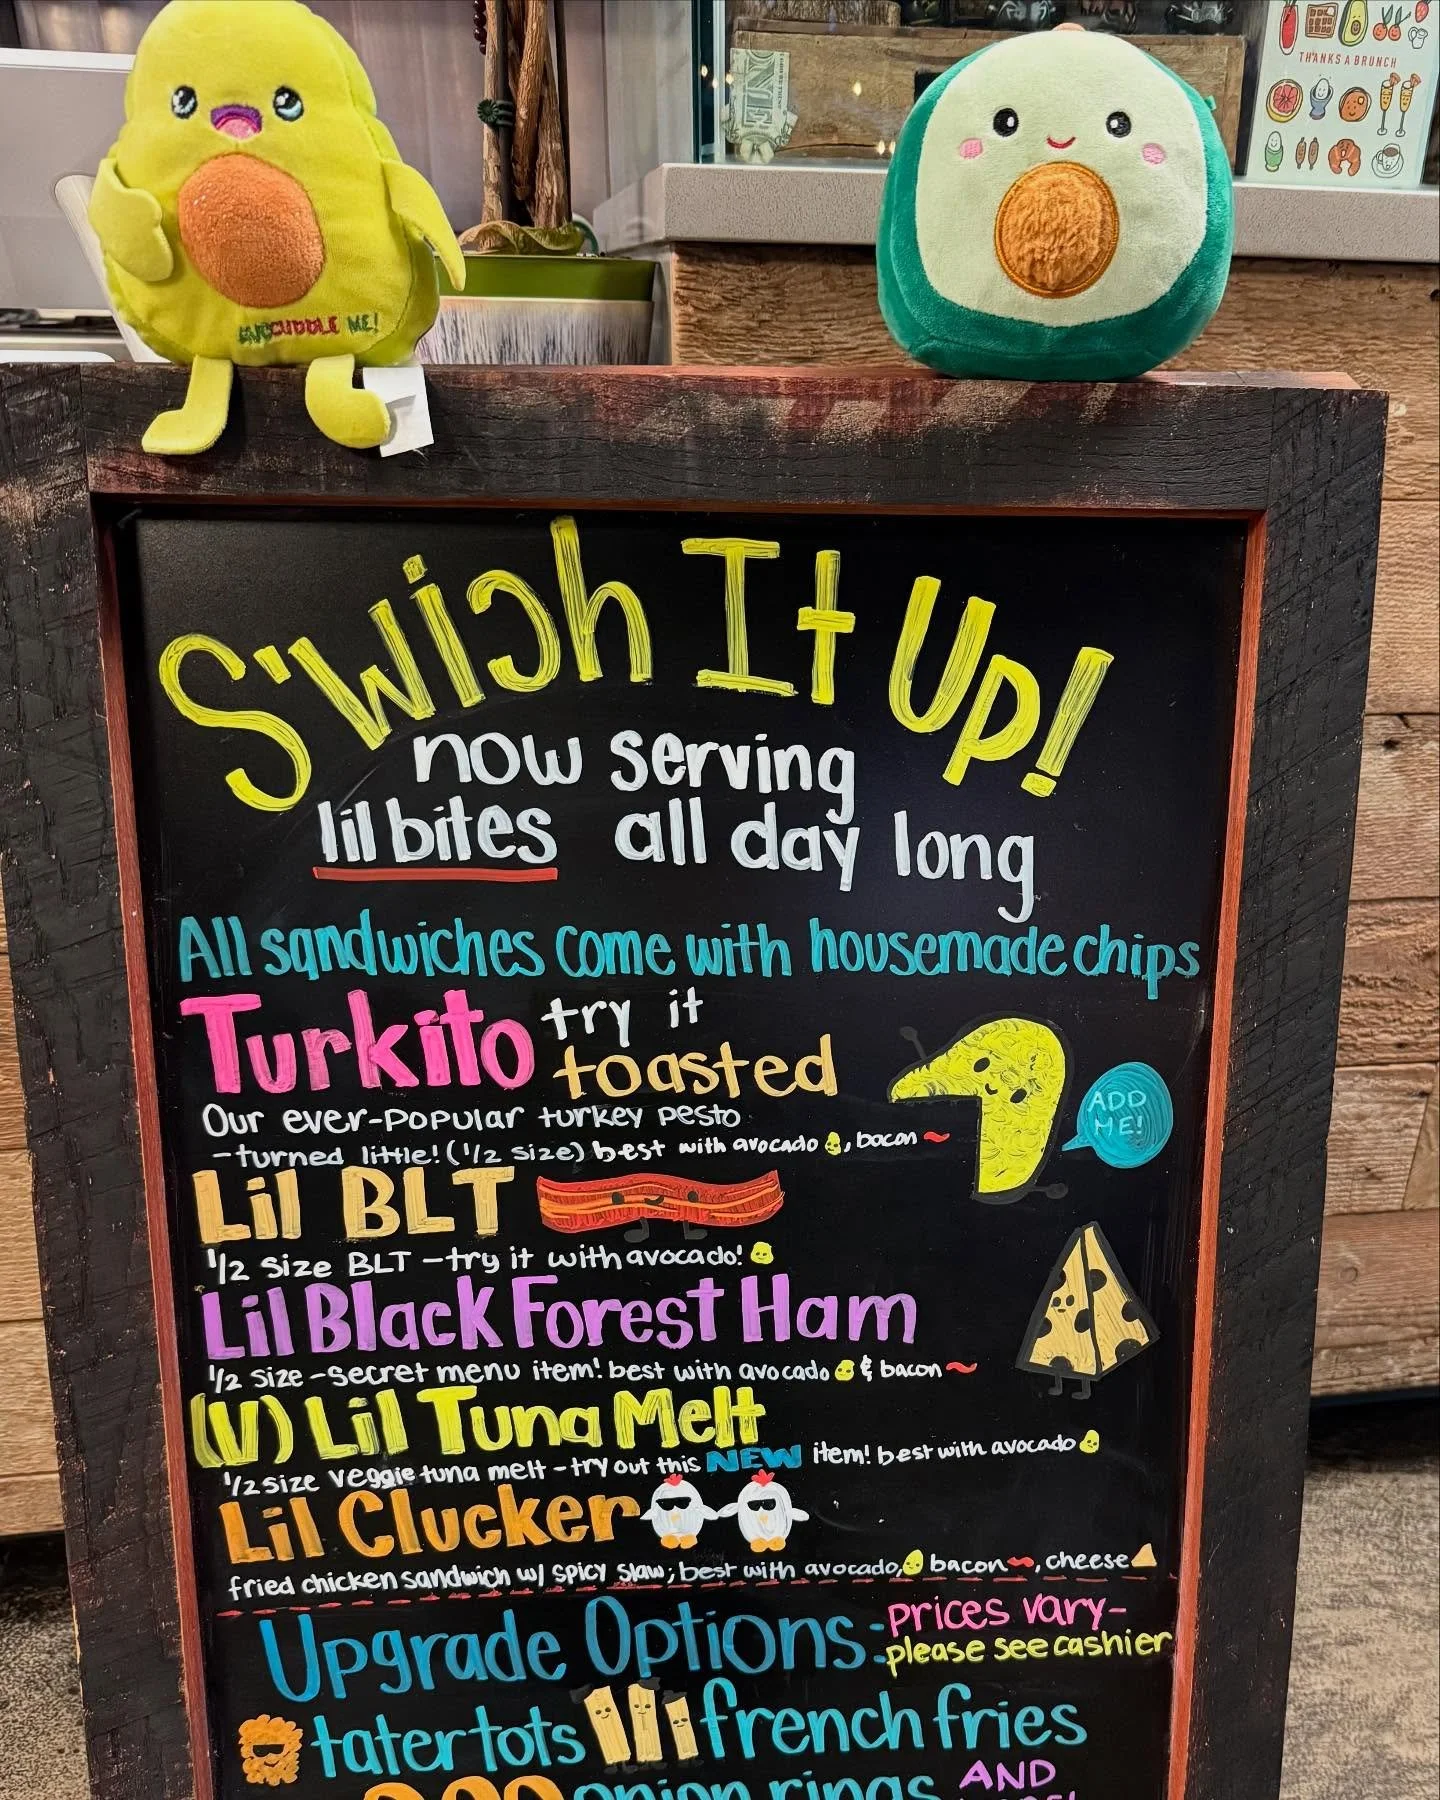 THANKS A BRUNCH
AVOCUDDLE ME!
S'wich It Up!
now serving
lil bites all day long
All sandwiches come with housemade chips
Turkito try it
toasted
Our ever-popular turkey pesto
-turned little! (1/2 size) best with avocado, bacon
ADD
ME!
Lil BLT
1/2 size BLT - try it with avocado!
Lil Black Forest Ham
1/2 size - secret menu item! best with avocado & bacon
(V) Lil Tuna Melt
1/2 size veggie tuna melt - try out this NEW item! best with avocado
Lil Clucker
fried chicken sandwich w/ spicy slaw; best with avocado, bacon, cheese
Upgrade Options: prices vary-
please see cashier
tater tots french fries
onion rings AND